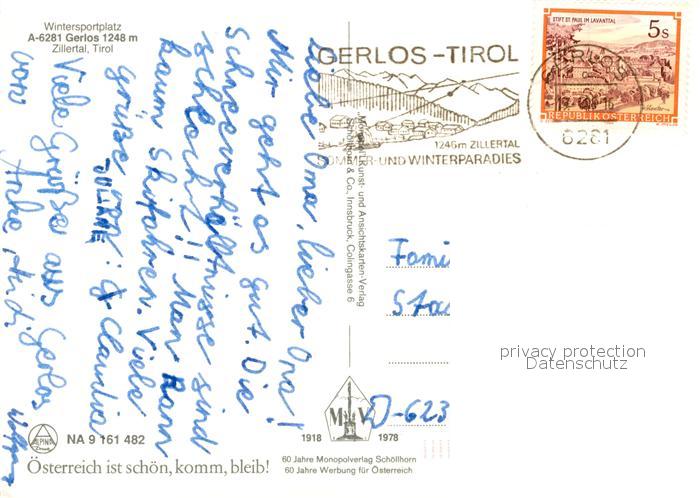 Wintersportplatz
A-6281 Gerlos 1248 m
Zillertal, Tirol
GERLOS-TIROL
1246m ZILLERTAL
SOMMER-UND WINTERPARADIES
STIFT ST. PAUL IM LAVANTTAL
5s
REPUBLIK ÖSTERREICH
6281
Liebe Oma, lieber Opa!
Mir geht es gut. Die
Schneeverhältnisse sind
schlecht!! Man kann
kaum Skifahren. Viele
Grüße von & Claudia
JULIANE
Viele Grüße aus Gerlos
von Anke
Monopol Kunst- und Ansichtskarten-Verlag
& Co., Innsbruck, Colingasse 6
Fami
Sta
D-623
privacy protection
Datenschutz
M V
1918 1978
60 Jahre Monopolverlag Schöllhorn
60 Jahre Werbung für Österreich
ALPINA
NA 9 161 482
Österreich ist schön, komm, bleib!